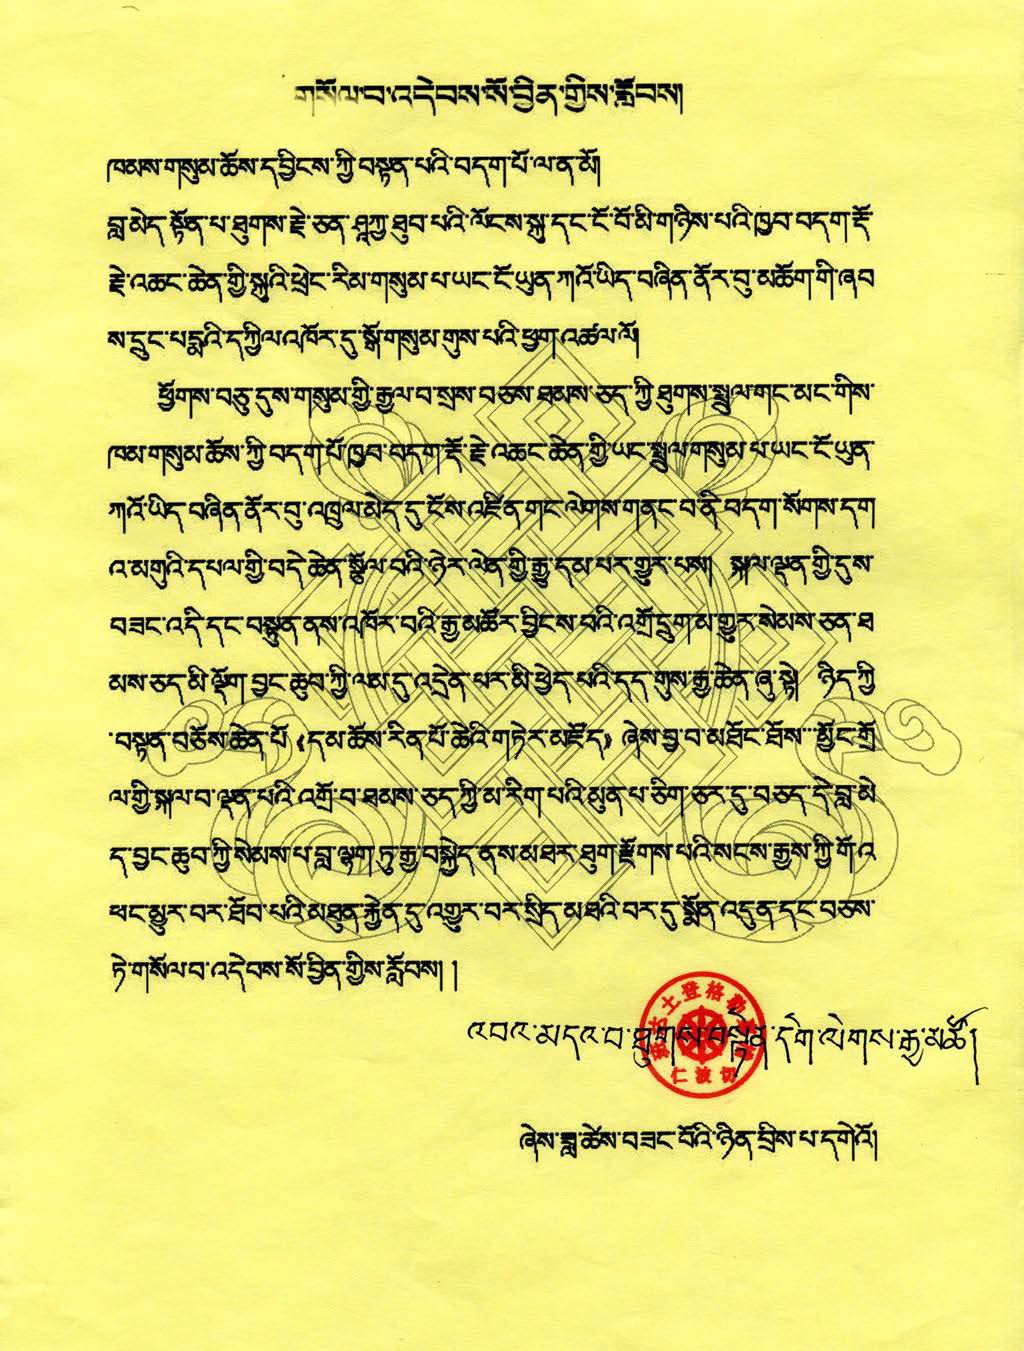 གསོལ་བ་འདེབས་སོ་བྱིན་གྱིས་རློབས།
ཁམས་གསུམ་ཆོས་དབྱིངས་ཀྱི་བསྟན་པའི་བདག་པོ་ལ་ན་མོ།
བླ་མེད་སྟོན་པ་ཐུགས་རྗེ་ཅན་ཤཱཀྱ་ཐུབ་པའི་ལོངས་སྐུ་དང་ངོ་བོ་མི་གཉིས་པའི་ཁྱབ་བདག་རྡོ་
རྗེ་འཆང་ཆེན་གྱི་སྐུའི་ཕྲེང་རིམ་གསུམ་པ་ཡང་ངོ་ཡུན་ཀའོ་ཡིད་བཞིན་ནོར་བུ་མཆོག་གི་ཞབ
ས་དྲུང་པདྨའི་དཀྱིལ་འཁོར་དུ་སྒོ་གསུམ་གུས་པའི་ཕྱག་འཚལ་ལོ།
ཕྱོགས་བཅུ་དུས་གསུམ་གྱི་རྒྱལ་བ་སྲས་བཅས་ཐམས་ཅད་ཀྱི་ཐུགས་སྤྲུལ་གང་མང་གིས་
ཁམ་གསུམ་ཆོས་ཀྱི་བདག་པོ་ཁྱབ་བདག་རྡོ་རྗེ་འཆང་ཆེན་གྱི་ཡང་སྤྲུལ་གསུམ་པ་ཡང་ངོ་ཡུན་
ཀའོ་ཡིད་བཞིན་ནོར་བུ་འཁྲུལ་མེད་དུ་ངོས་འཛིན་གང་ལེགས་གནང་བ་ནི་བདག་སོགས་དག
འ་མགུའི་དཔལ་གྱི་བདེ་ཆེན་སྩོལ་བའི་ཉེར་ལེན་གྱི་རྒྱུ་དམ་པར་གྱུར་པས། སྐལ་ལྡན་གྱི་དུས་
བཟང་འདི་དང་བསྟུན་ནས་འཁོར་བའི་རྒྱ་མཚོར་བྱིངས་བའི་འགྲོ་དྲུག་མ་གྱུར་སེམས་ཅན་ཐ
མས་ཅད་མི་ལྡོག་བྱང་ཆུབ་ཀྱི་ལམ་དུ་འདྲེན་པར་མི་ཕྱེད་པའི་དད་གུས་རྒྱ་ཆེན་ཞུ་སྟེ། ཉིད་ཀྱི
་བསྟན་བཅོས་ཆེན་པོ《དམ་ཆོས་རིན་པོ་ཆེའི་གཏེར་མཛོད》ཞེས་བྱ་བ་མཐོང་ཐོས་མྱོང་གྲོ
ལ་གྱི་སྐལ་བ་ལྡན་པའི་འགྲོ་བ་ཐམས་ཅད་ཀྱི་མ་རིག་པའི་མུན་པ་ཅིག་ཅར་དུ་བཅད་དེ་བླ་མེ
ད་བྱང་ཆུབ་ཀྱི་སེམས་པ་བླ་ལྷག་ཏུ་རྒྱ་བསྐྱེད་ནས་མཐར་ཐུག་རྫོགས་པའི་སངས་རྒྱས་ཀྱི་གོ་འ
ཕང་མྱུར་བར་ཐོབ་པའི་མཐུན་རྐྱེན་དུ་འགྱུར་བར་སྲིད་མཐའི་བར་དུ་སྨོན་འདུན་དང་བཅས་
ཏེ་གསོལ་བ་འདེབས་སོ་བྱིན་གྱིས་རློབས། །
འབའ་མདའ་བ་ཐུགས་བསྟེན་དགེ་ལེགས་རྒྱ་མཚོ།
土登格勒
仁波切
ཞེས་ཟླ་ཚེས་བཟང་པོའི་ཉིན་བྲིས་པ་དགེའོ།